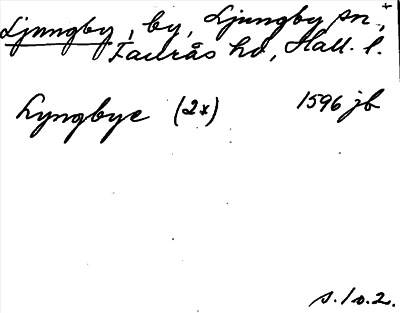 Ljungby, by, Ljungby sn.,
Faurås hd, Hall. l.
Lyngbye (2x) 1596 jb
s. 1 o. 2.